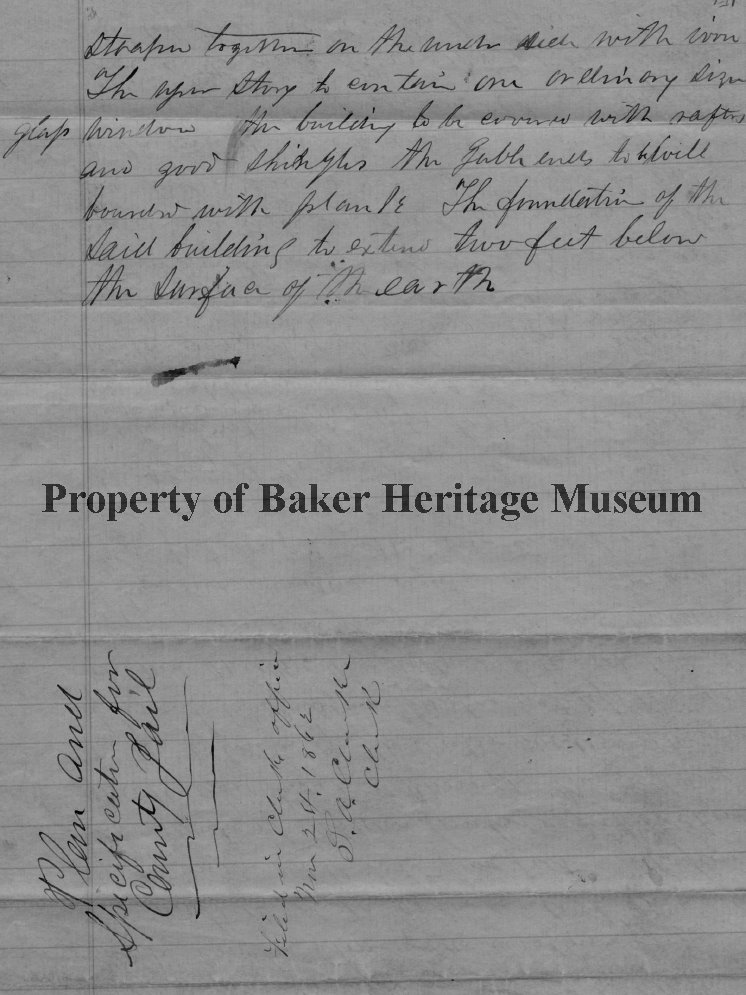 together on the under side with iron
The uper Story to contain one ordinary Size
glass window the building to be covered with rafters
and good Shingles the Gable ends to be
bounded with plank The foundation of the
Said building to extend two feet below
the Surface of the earth
Property of Baker Heritage Museum
Plan and
Specification for
County Jail
Filed in Clerks office
Nov 24. 1862
Clerk